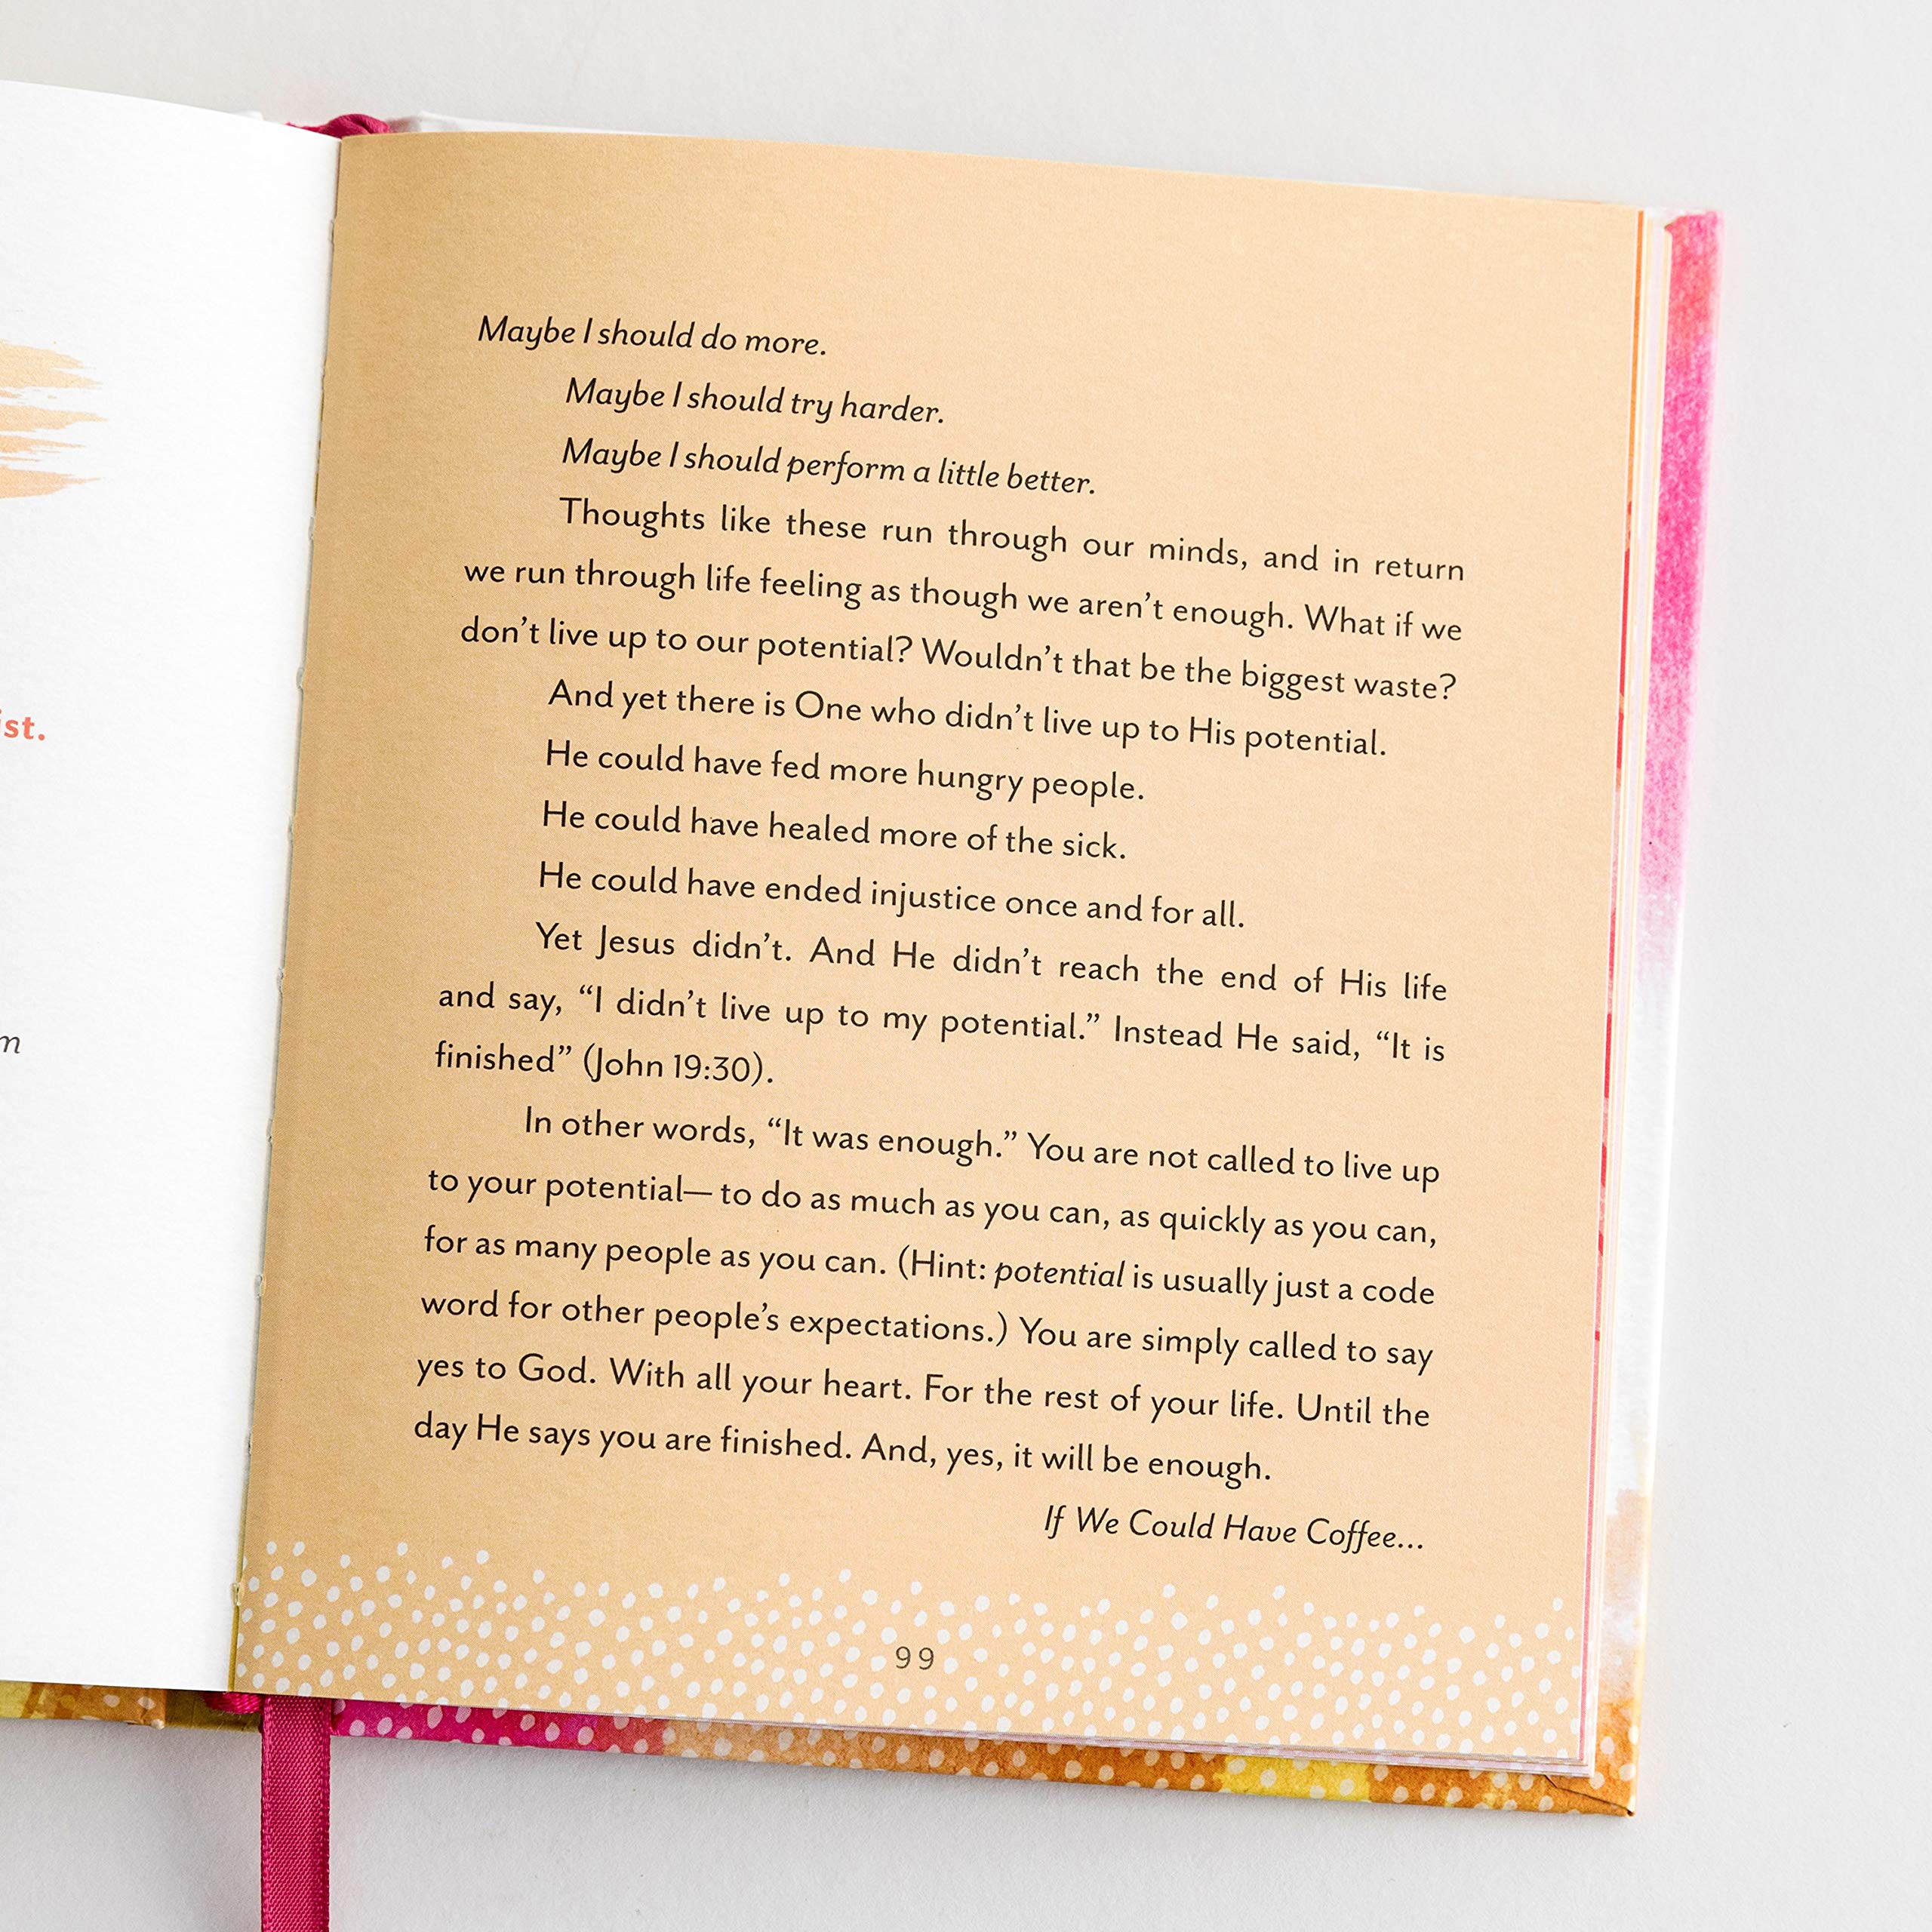 ist.
m
Maybe I should do more.
Maybe I should try harder.
Maybe I should perform a little better.
Thoughts like these run through our minds, and in return
we run through life feeling as though we aren’t enough. What if we
don’t live up to our potential? Wouldn’t that be the biggest waste?
And yet there is One who didn’t live up to His potential.
He could have fed more hungry people.
He could have healed more of the sick.
He could have ended injustice once and for all.
Yet Jesus didn’t. And He didn’t reach the end of His life
and say, “I didn’t live up to my potential.” Instead He said, “It is
finished” (John 19:30).
In other words, “It was enough.” You are not called to live up
to your potential— to do as much as you can, as quickly as you can,
for as many people as you can. (Hint: potential is usually just a code
word for other people’s expectations.) You are simply called to say
yes to God. With all your heart. For the rest of your life. Until the
day He says you are finished. And, yes, it will be enough.
If We Could Have Coffee...
99